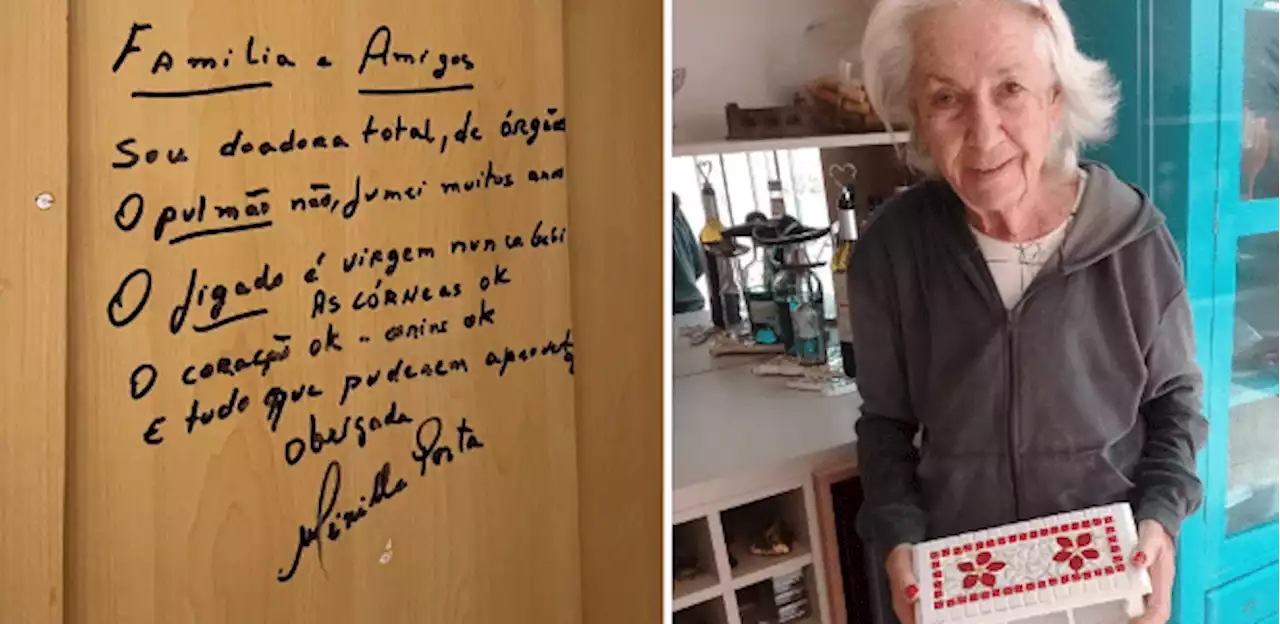 Família e Amigos
Sou doadora total, de órgão
O pulmão não, fumei muitos anos
O fígado é virgem nunca bebi
As córneas ok
O coração ok - ok
E tudo que puderem aproveita
Obergada
Porta